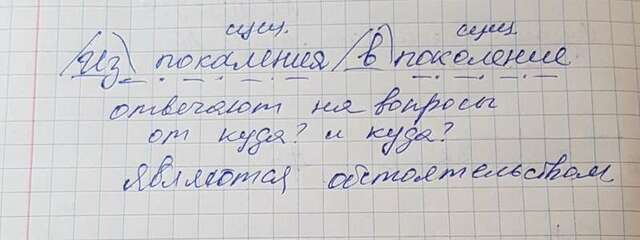 сущ. сущ.
(Из) покаления (в) поколение
отвечают на вопросы
от куда? и куда?
являются обстоятельством